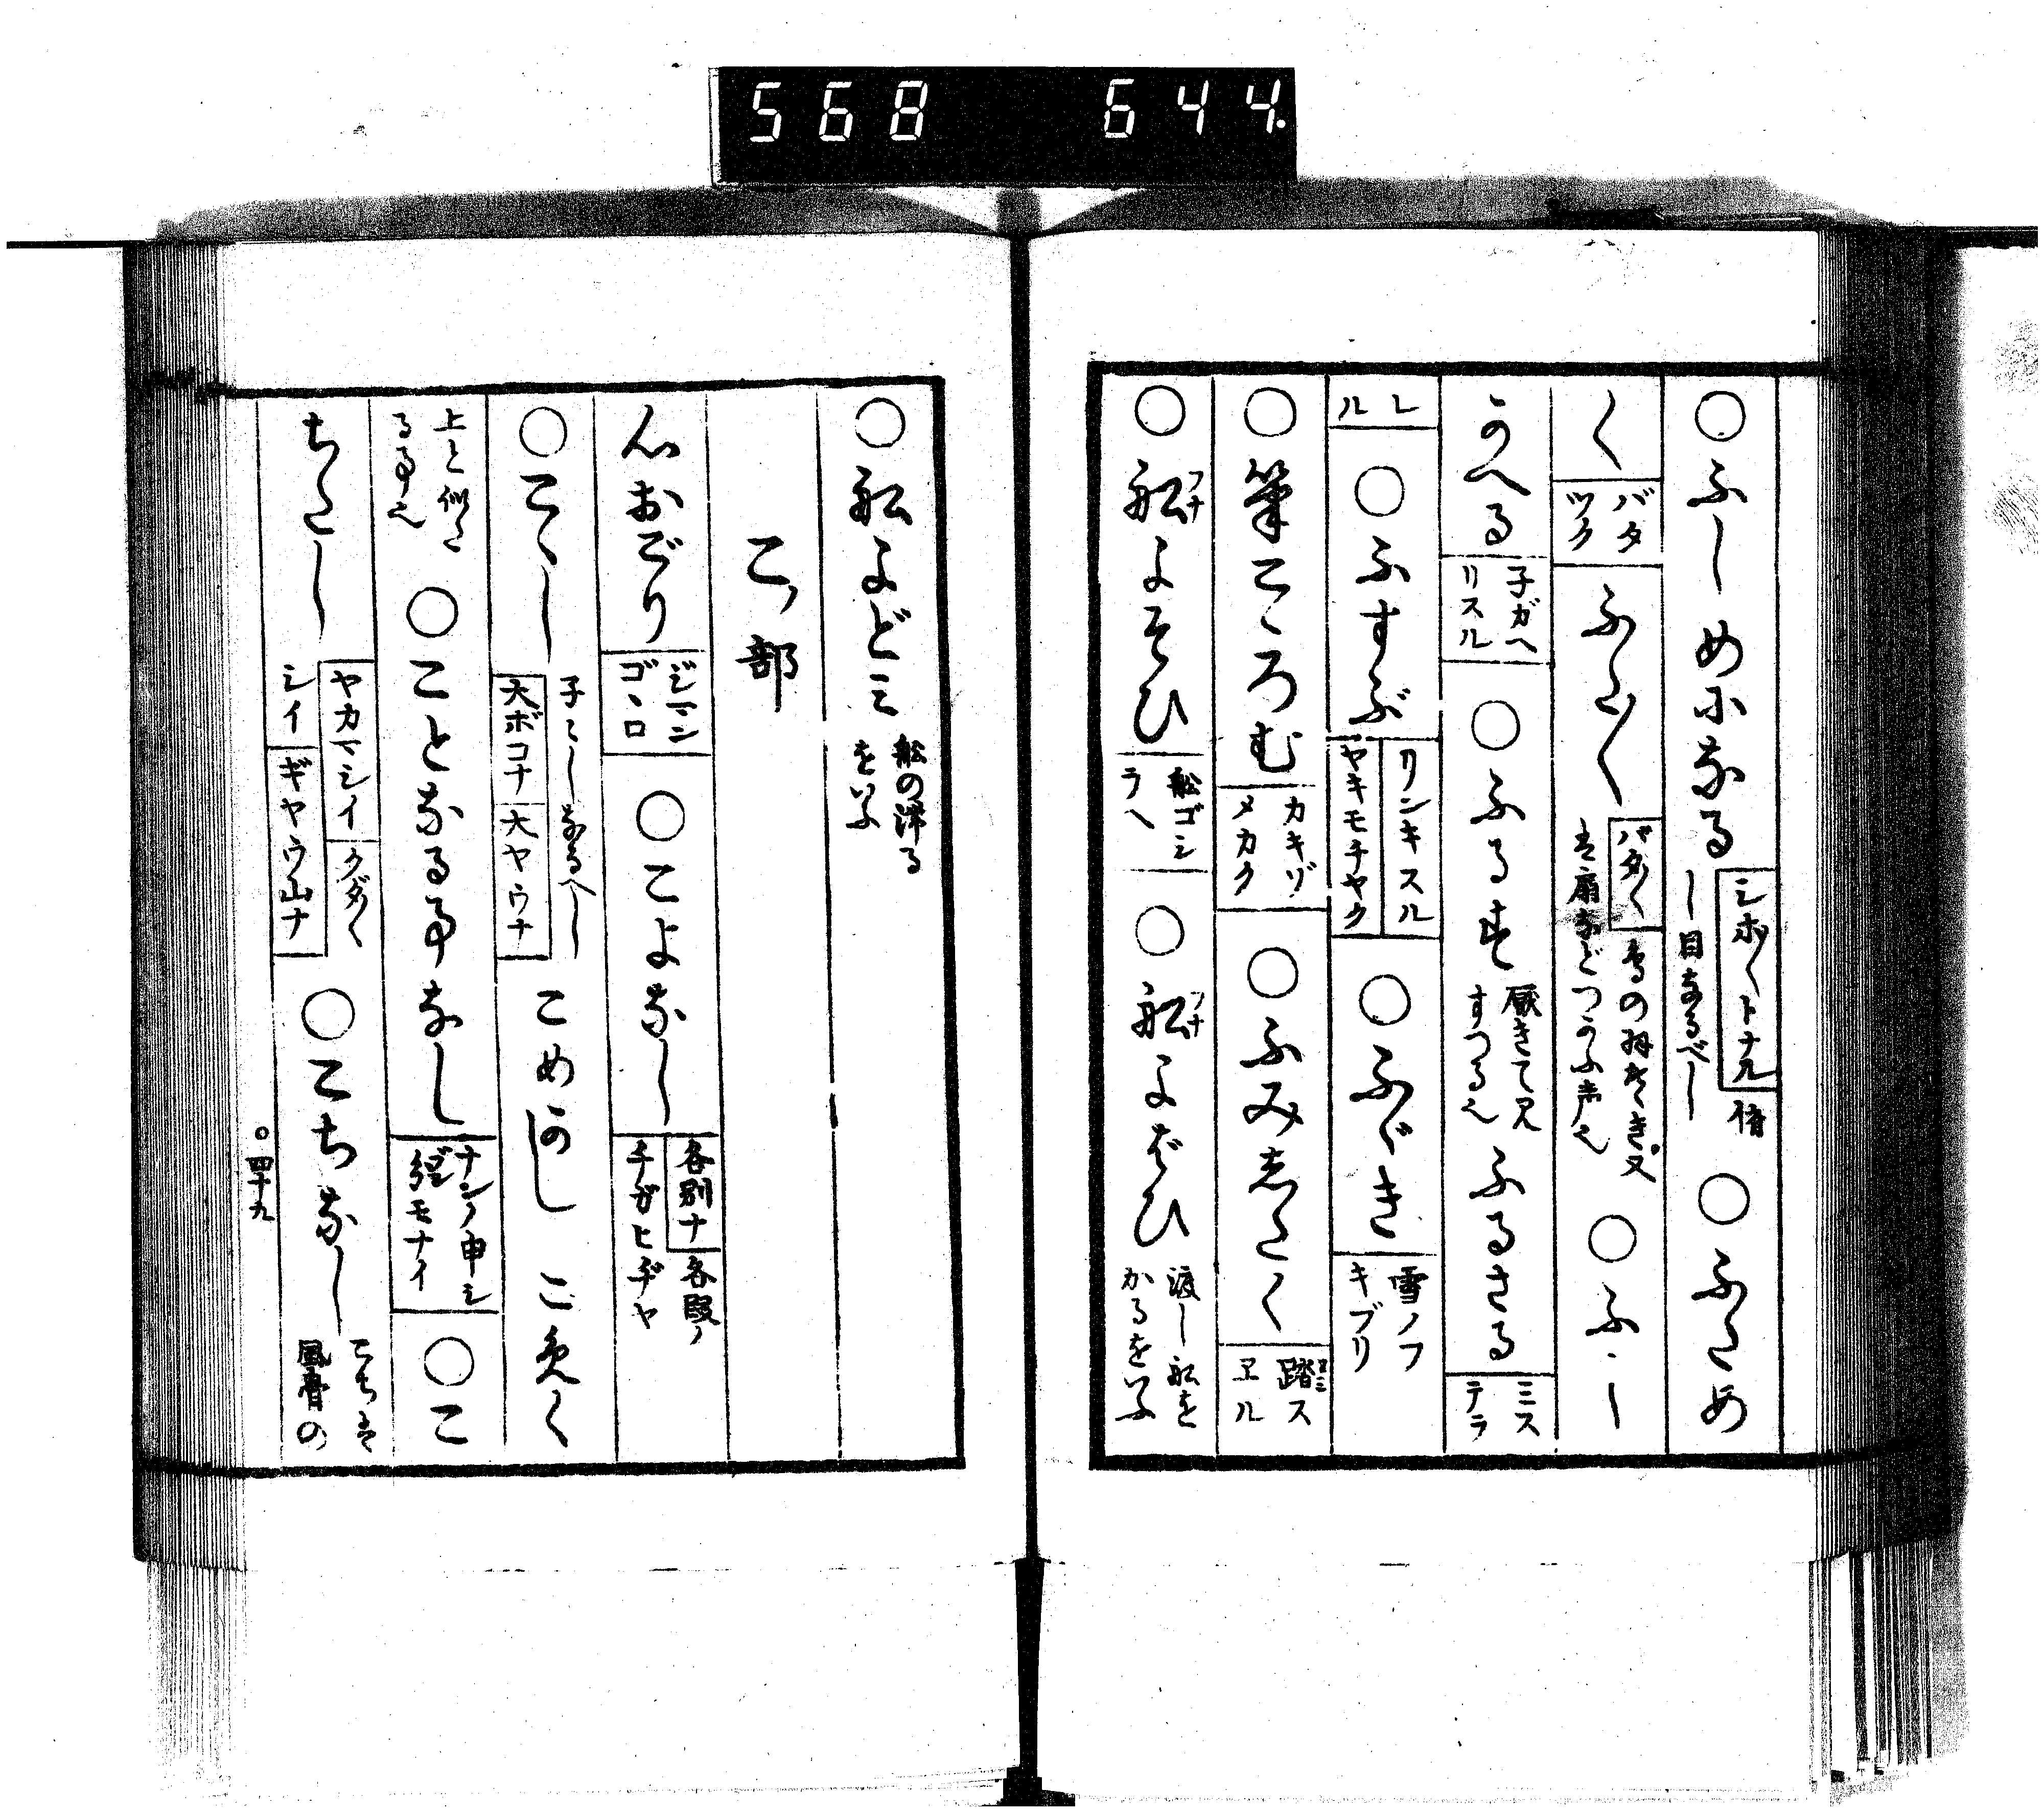 568 644.
○ふしめになる シホ〱トナル 俯し目なるべし ○ふため
く バタツク ふた〱 バタ〱 鳥の羽たゝき又は扇などつかふ声也 ○ふゝし
かへる 子ガヘリスル ○ふるす 厭きて又すつる也 ふるさる ミステラ
レル ○ふすぶ リンキスル ヤキモチヤク ○ふゞき 雪ノフキブリ
○筆こゝろむ カキゾメカク ○ふみしたく 踏スヱル
○船よそひ 船ゴシラヘ ○船よばひ 渡し船をかるをいふ
○船よどミ 船の滞るをいふ
この部
心おごり ジマンゴヽロ ○こよなし 各別ナ 各段ノ チガヒヂヤ
○こゝし 子々しなるべし 大ボコナ 大ヤウナ こめかし こめく
上と似たる事也 ○ことなる事なし ナンノ申シ分モナイ ○こ
ちたし ヤカマシイ クダ〱シイ ギヤウ山ナ ○こちなし こちは風骨の
○四十九